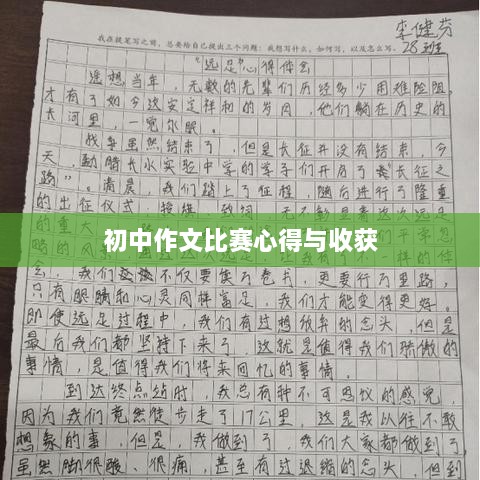 李健芬
28班
我在提笔写之前,总要给自己提出三个问题:我想写什么,如何写,以及怎么写。
“远足”心得体会
遥想当年,无数的先辈们历经多少用难险阻,
才有了如今这安定祥和的岁月,他们躺在历史的
长河里,一览尔眠。
战争虽然结束了,但是长征并没有结束,今
天,勐腊长水实验中学的学子们开启了“长征之
路”。清晨,我们踏上了征程,随后进行了隆重
的出征仪式:授旗、致词,
初中作文比赛心得与收获
会,我们不仅要读万卷书,更要行万里路,
只有眼睛和心灵同样富足,我们才能变得更好。
即使远足过程中,我们有过想放弃的念头,但是
最后我们都坚持下来了,这就是值得我们骄傲的
事情,是值得我们将来回忆的事情。
到达终点站时,我总有种不可思议的感觉,
因为我们竟然徒步走了17公里,这是我以往不敢
想象的事,但是,我做到了,我们大家都做到了,
虽然脚很酸、很痛,甚至有过退缩的念头,但到